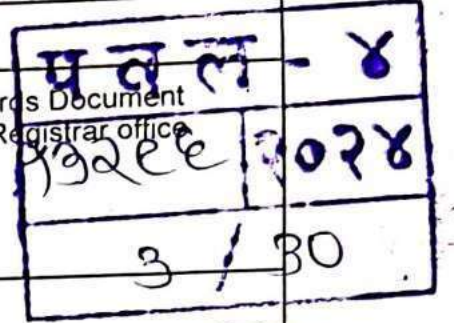 प व ल - ४
rds Document
Registrar office
२०२४
3 / 30